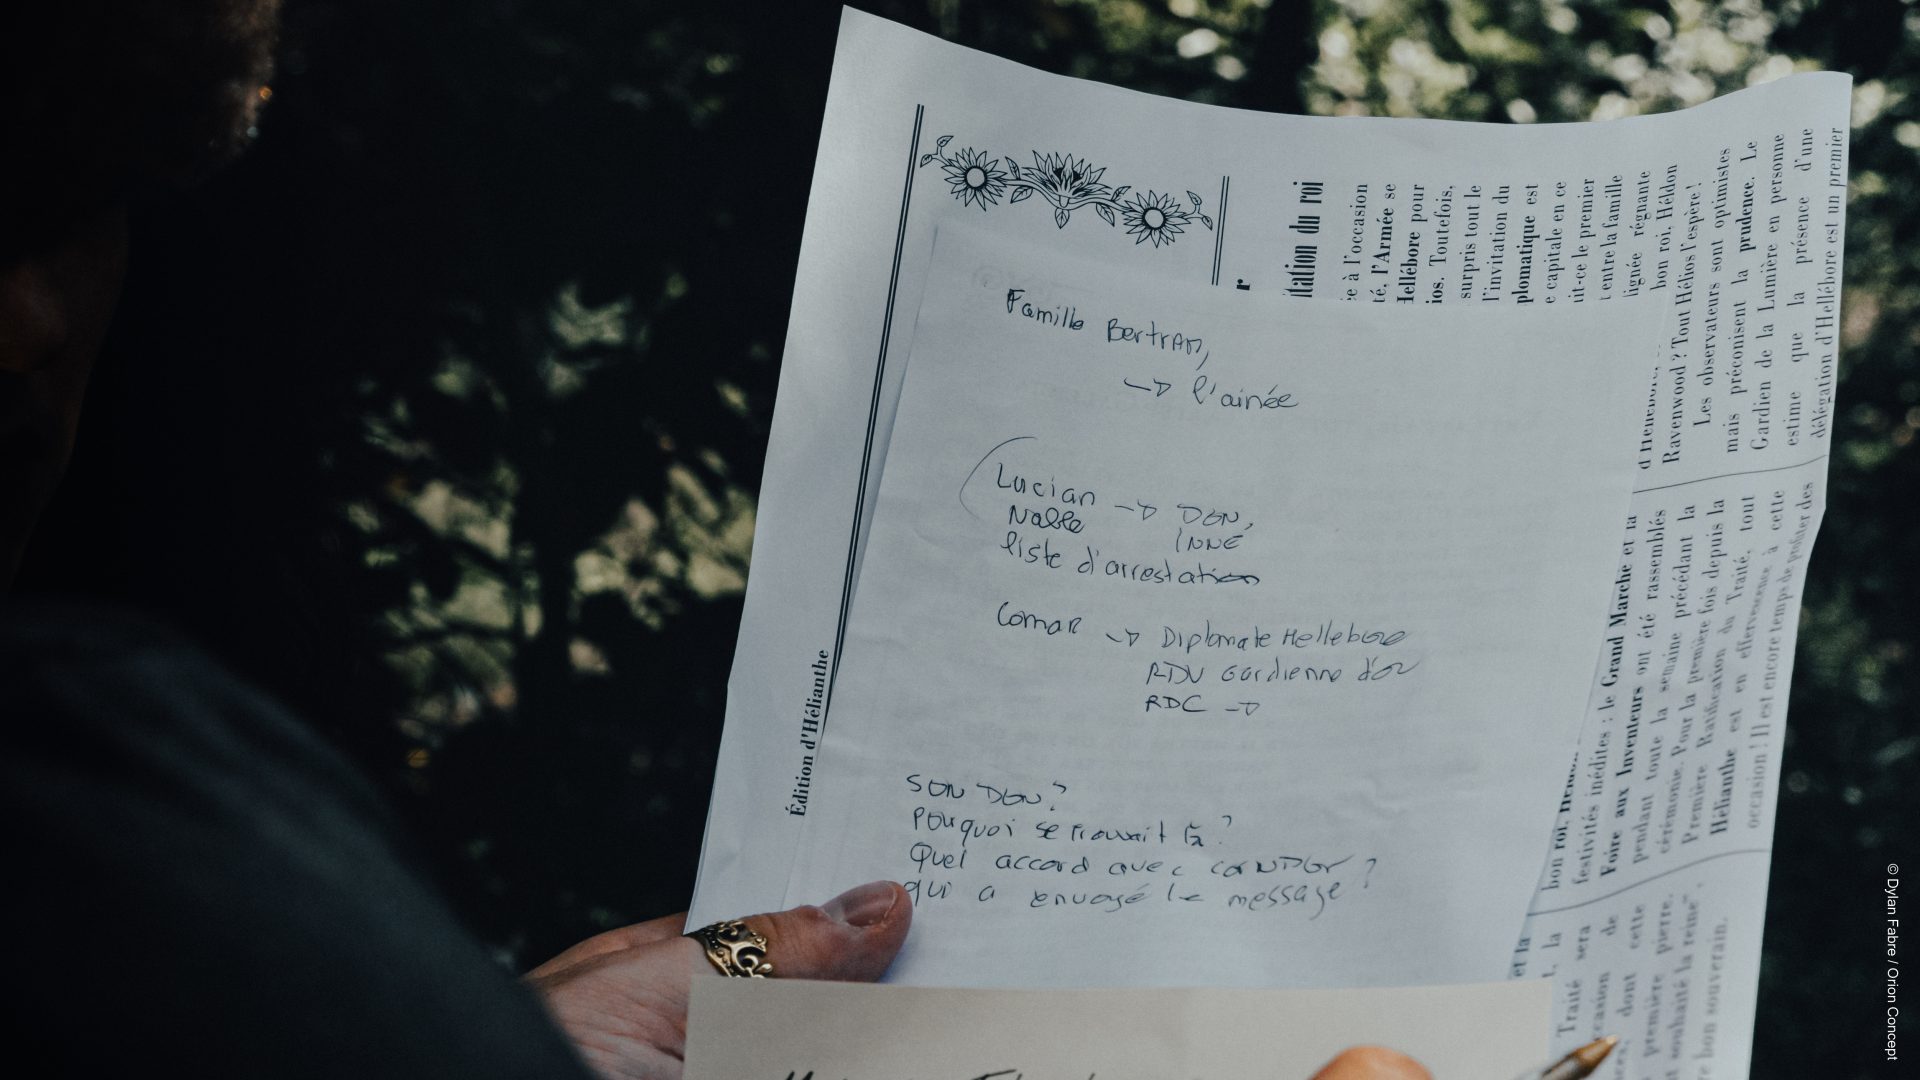 Famille Bertran,
→ l'ainée
Lucian → DON,
Noble INNÉ
liste d'arrestation
Comar → Diplomate Hellebore
RDV Gardienne d'or
RDC →
SON DON?
Pourquoi se trouvait là?
Quel accord avec CONDOR?
qui a envoyé le message
Édition d'Hélianthe
r
itation du roi
à l'occasion
té, l'Armée se
Hellébore pour
ios. Toutefois,
surpris tout le
l'invitation du
plomatique est
e capitale en ce
it-ce le premier
entre la famille
lignée régnante
bon roi, Héldon
Ravenwood ? Tout Hélios l'espère !
Les observateurs sont optimistes
mais préconisent la prudence. Le
Gardien de la Lumière en personne
estime que la présence d'une
délégation d'Hellébore est un premier
bon roi,
festivités inédites : le Grand Marche et la
Foire aux Inventeurs ont été rassemblés
pendant toute la semaine précédant la
cérémonie. Pour la première fois depuis la
Première Ratification du Traité, tout
Hélianthe est en effervescence à cette
occasion ! Il est encore temps de profiter des
et la
t, la
Traité sera
occasion de
dont cette
première pierre.
souhaité la reine".
bon souverain.
© Dylan Fabre / Orion Concept